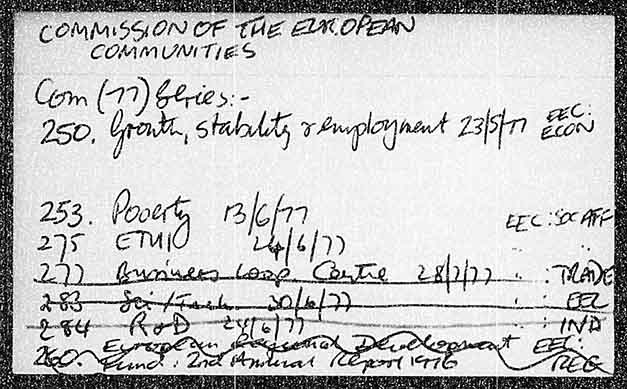 COMMISSION OF THE EUROPEAN
COMMUNITIES
Com (77) Series:-
250. Growth, stability & employment 23/5/77 EEC: ECON
253. Poverty 13/6/77 EEC: SOC AFF
275 ETUI 24/6/77 " "
277 Business Coop. Centre 28/7/77 " : TRADE
283 Sci/Tech 30/6/77 " : EEC
284 R&D 24/6/77 " : IND
260. European Regional Development EEC:
Fund: 2nd Annual Report 1976 REG